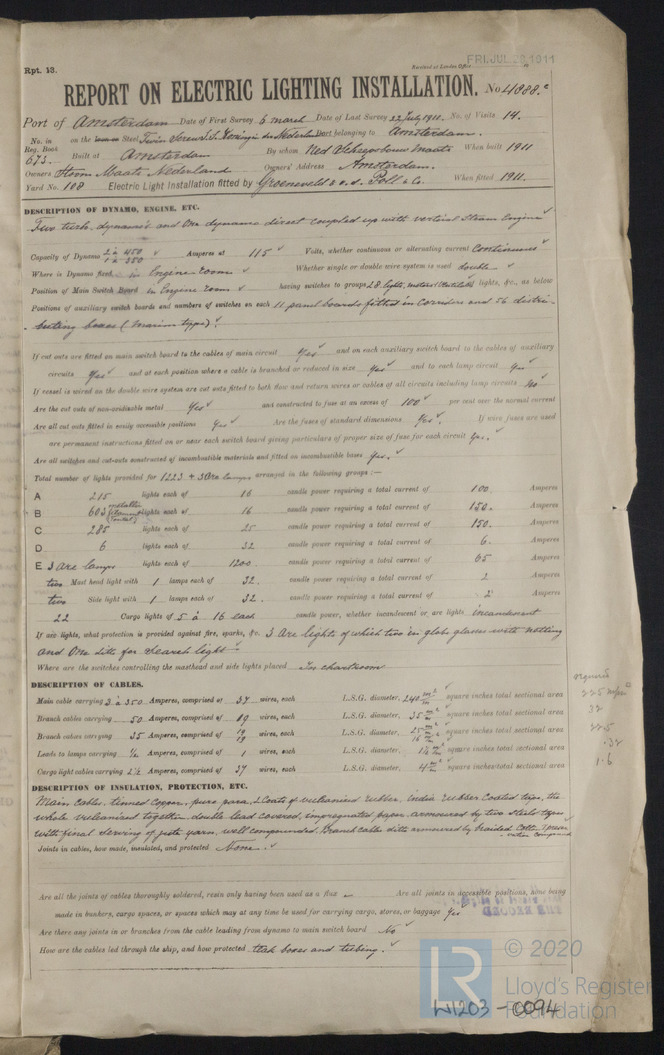 Rpt. 13.
Received at London Office
FRI. JUL. 28, 1911
REPORT ON ELECTRIC LIGHTING INSTALLATION. No 4088 c
Port of Amsterdam Date of First Survey 6 march Date of Last Survey 22 July 1911. No. of Visits 14.
No. in Reg. Book 675. on the Iron or Steel Twin Screw S.S. Koningin der Nederlanden Port belonging to Amsterdam.
Built at Amsterdam By whom Ned Scheepsbouw Maats When built 1911
Owners Stoom Maats Nederland Owners' Address Amsterdam.
Yard No. 108 Electric Light Installation fitted by Groeneveld v.d. Poll & Co. When fitted 1911.
DESCRIPTION OF DYNAMO, ENGINE, ETC.
Two turb. dynamo's and One dynamo direct coupled up with vertical Steam Engine
Capacity of Dynamo 2 à 450 1 à 350 Amperes at 115 Volts, whether continuous or alternating current Continuous
Where is Dynamo fixed in Engine room Whether single or double wire system is used double
Position of Main Switch Board in Engine room having switches to groups 28 lights, motors (Ventilat) lights, &c., as below
Positions of auxiliary switch boards and numbers of switches on each 11 panel boards fitted in corridors and 56 distri-
buting boxes (Marine type).
If cut outs are fitted on main switch board to the cables of main circuit Yes and on each auxiliary switch board to the cables of auxiliary
circuits Yes and at each position where a cable is branched or reduced in size Yes and to each lamp circuit Yes
If vessel is wired on the double wire system are cut outs fitted to both flow and return wires or cables of all circuits including lamp circuits No
Are the cut outs of non-oxidizable metal Yes and constructed to fuse at an excess of 100 per cent over the normal current
Are all cut outs fitted in easily accessible positions Yes Are the fuses of standard dimensions Yes. If wire fuses are used
are permanent instructions fitted on or near each switch board giving particulars of proper size of fuse for each circuit Yes.
Are all switches and cut-outs constructed of incombustible materials and fitted on incombustible bases Yes.
Total number of lights provided for 1223 + 3 Arc lamps arranged in the following groups :—
A 215 lights each of 16 candle power requiring a total current of 100. Amperes
B 603 metallic filament (Tantal) lights each of 16 candle power requiring a total current of 150. Amperes
C 285 lights each of 25 candle power requiring a total current of 150. Amperes
D 6 lights each of 32 candle power requiring a total current of 6. Amperes
E 3 Arc lamps lights each of 1200 candle power requiring a total current of 65 Amperes
two Mast head light with 1 lamps each of 32. candle power requiring a total current of 2 Amperes
two Side light with 1 lamps each of 32. candle power requiring a total current of 2 Amperes
22 Cargo lights of 5 à 16 each candle power, whether incandescent or arc lights incandescent
If arc lights, what protection is provided against fire, sparks, &c. 3 Arc lights of which two in globe glasses with netting
and One ditto for Search light
Where are the switches controlling the masthead and side lights placed In chartroom
DESCRIPTION OF CABLES.
Main cable carrying 3 à 350 Amperes, comprised of 37 wires, each L.S.G. diameter, 240 m/m² square inches total sectional area
Branch cables carrying 50 Amperes, comprised of 19 wires, each L.S.G. diameter, 35 m/m² square inches total sectional area
Branch cables carrying 35 Amperes, comprised of 19 19 wires, each L.S.G. diameter, 25 m/m² 16 m/m² square inches total sectional area
Leads to lamps carrying ½ Amperes, comprised of 1 wires, each L.S.G. diameter, 1½ m/m² square inches total sectional area
Cargo light cables carrying 2½ Amperes, comprised of 37 wires, each L.S.G. diameter, 4 m/m² square inches total sectional area
225
32
22.5
.32
1.6
DESCRIPTION OF INSULATION, PROTECTION, ETC.
Main cables, tinned copper, pure para, 2 Coats of vulcanised rubber, india rubber coated tape, the
whole vulcanised together, double lead covered, impregnated paper, armoured by two steel tapes
with final serving of jute yarn, well compounded. Branch cables ditto armoured by braided Cotton & preser-
vation compound
Joints in cables, how made, insulated, and protected None.
Are all the joints of cables thoroughly soldered, resin only having been used as a flux – Are all joints in accessible positions, none being
made in bunkers, cargo spaces, or spaces which may at any time be used for carrying cargo, stores, or baggage Yes
Are there any joints in or branches from the cable leading from dynamo to main switch board No
How are the cables led through the ship, and how protected teak boxes and tubing.
© 2020
LR Lloyd's Register
Foundation
W1203-0094